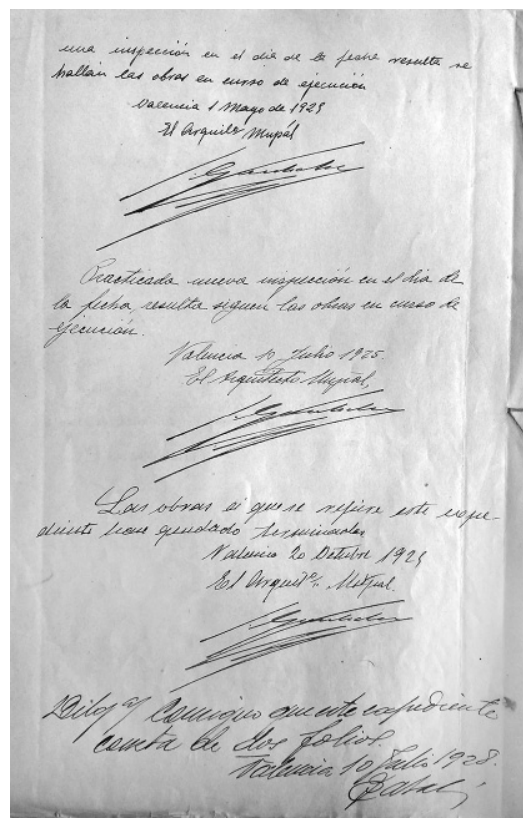 una inspección en el dia de la fecha resulta se
hallan las obras en curso de ejecución
Valencia 1 Mayo de 1925
El Arquito Mupál
Practicada nueva inspección en el dia de
la fecha, resulta siguen las obras en curso de
ejecución.
Valencia 10 Julio 1925.
El Arquitecto Mupal,
Las obras a que se refiere este expe-
diente han quedado terminadas
Valencia 20 Octubre 1925
El Arquitº. Mupal.
Diligª Consigno que este expediente
consta de dos folios.
Valencia 10 Julio 1928.